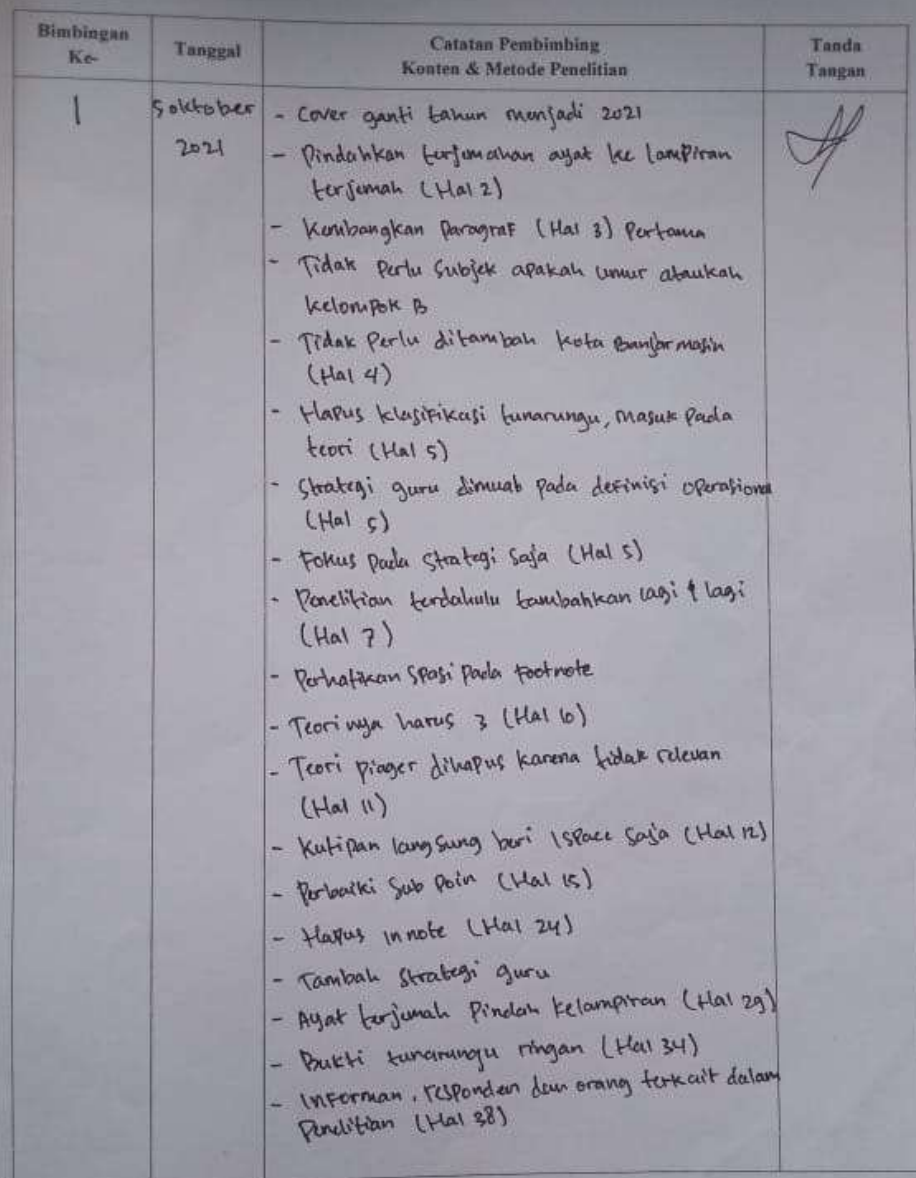 Bimbingan Ke-
Tanggal
Catatan Pembimbing
Konten & Metode Penelitian
Tanda Tangan
1
5 oktober
2021
- Cover ganti tahun menjadi 2021
- Pindahkan terjemahan ayat ke lampiran
terjemah (Hal 2)
- Kembangkan Paragraf (Hal 3) Pertama
- Tidak Perlu Subjek apakah umur ataukah
kelompok B
- Tidak Perlu ditambah kota Banjarmasin
(Hal 4)
- Hapus klasifikasi tunarungu, masuk pada
teori (Hal 5)
- Strategi guru dimuab pada definisi operasiona
(Hal 5)
- Fokus pada Strategi Saja (Hal 5)
- Penelitian terdahulu tambahkan lagi & lagi
(Hal 7)
- Perhatikan Spasi pada footnote
- Teorinya harus 3 (Hal 10)
- Teori piager dihapus karena tidak relevan
(Hal 11)
- Kutipan langsung beri 1 space saja (Hal 12)
- Perbaiki Sub Poin (Hal 15)
- Hapus innote (Hal 24)
- Tambah Strategi guru
- Ayat terjemah Pindah kelampiran (Hal 29)
- Bukti tunarungu ringan (Hal 34)
- Informan, responden dan orang terkait dalam
Penelitian (Hal 38)